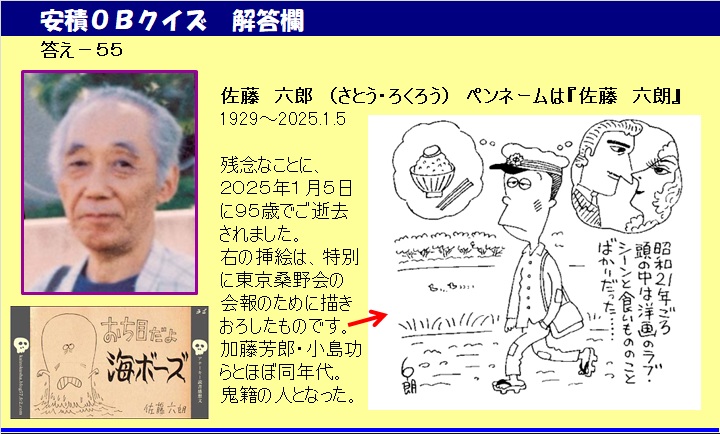 安積OBクイズ　解答欄
答え－55
佐藤　六郎　（さとう・ろくろう）　ペンネームは『佐藤　六朗』
1929～2025.1.5
残念なことに、
2025年1月5日
に95歳でご逝去
されました。
右の挿絵は、特別
に東京桑野会の
会報のために描き
おろしたものです。
加藤芳郎・小島功
らとほぼ同年代。
鬼籍の人となった。
昭和21年ごろ
頭の中は洋画のラブ・
シーンと食いもののこと
ばかりだった……
6朗
おち目だよ
海ボーズ
佐藤六朗